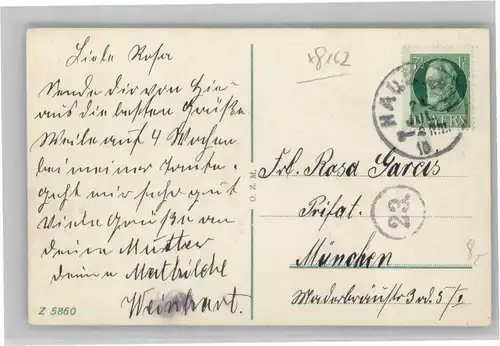 Liebe Rosa
Sende dir von hier
aus die besten Grüße
Weile auf 4 Wochen
bei meiner Tante.
geht mir sehr gut
Viele Grüße an
deine Mutter
deine Mathilde
Weinhart.
Z 5860
O. Z. M.
8162
BAYERN
18
Frl. Rosa Garcis
Prifat.
23
München
8,-